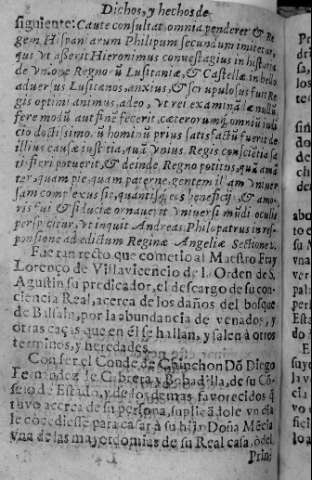 Dichos, y hechos de
siguiente: Caute consultat omnia penderet & Re
gem Hispaniarum Philipum secundum imitetur,
qui vt asserit Hieronimus conuestagius in historia
de vnione Regno ũ Lusitaniæ, & Castellæ in bello
aduersus Lusitanos, anxius, & scrupulosus fuit Re
gis optimi animus, adeo, vt rei examinã
fere modũ aut finẽ fecerit, cæterorumq́ omniũ iudi
cio doctissimo. ũ hominũ prius satisfactũ fuerit de
illius causæ iustitia, quã ipsius Regis consciẽtia sa
tisfieri potuerit, & deinde, Regno potitus, quã amã
ter, quam pie, quam paterne, gentem illam vniuer
sam complexus sit, quantisq́ eos beneficijs & amo
ris sui & fiduciæ ornauerit vniuersi mũdi oculis
perspicitur, vt inquit Andreas Philopatrus in res
ponsione ad edictum Reginæ Angliæ Sectione
Fue tan recto que cometio al Maestro Fray
Lorenço de Villavicencio de la Orden de S.
Agustin su predicador, el descargo de su con
ciencia Real, acerca de los daños del bosque
de Balsain, por la abundancia de venados, y
otras caças que en èl se hallan, y salen à otros
terminos, y heredades.
Con ser el Conde de Chinchon Dõ Diego
Fernandez de Cabrera y Bobadilla, de su Cõ
sejo de Estado, y de los demas fauorecidos q̃
tuvo acerca de su persona, suplicãdole vn dia
le cõcediesse para casar à su hija Doña Mẽcia
vna de las mayordomias de su Real casa, ò del
Prin